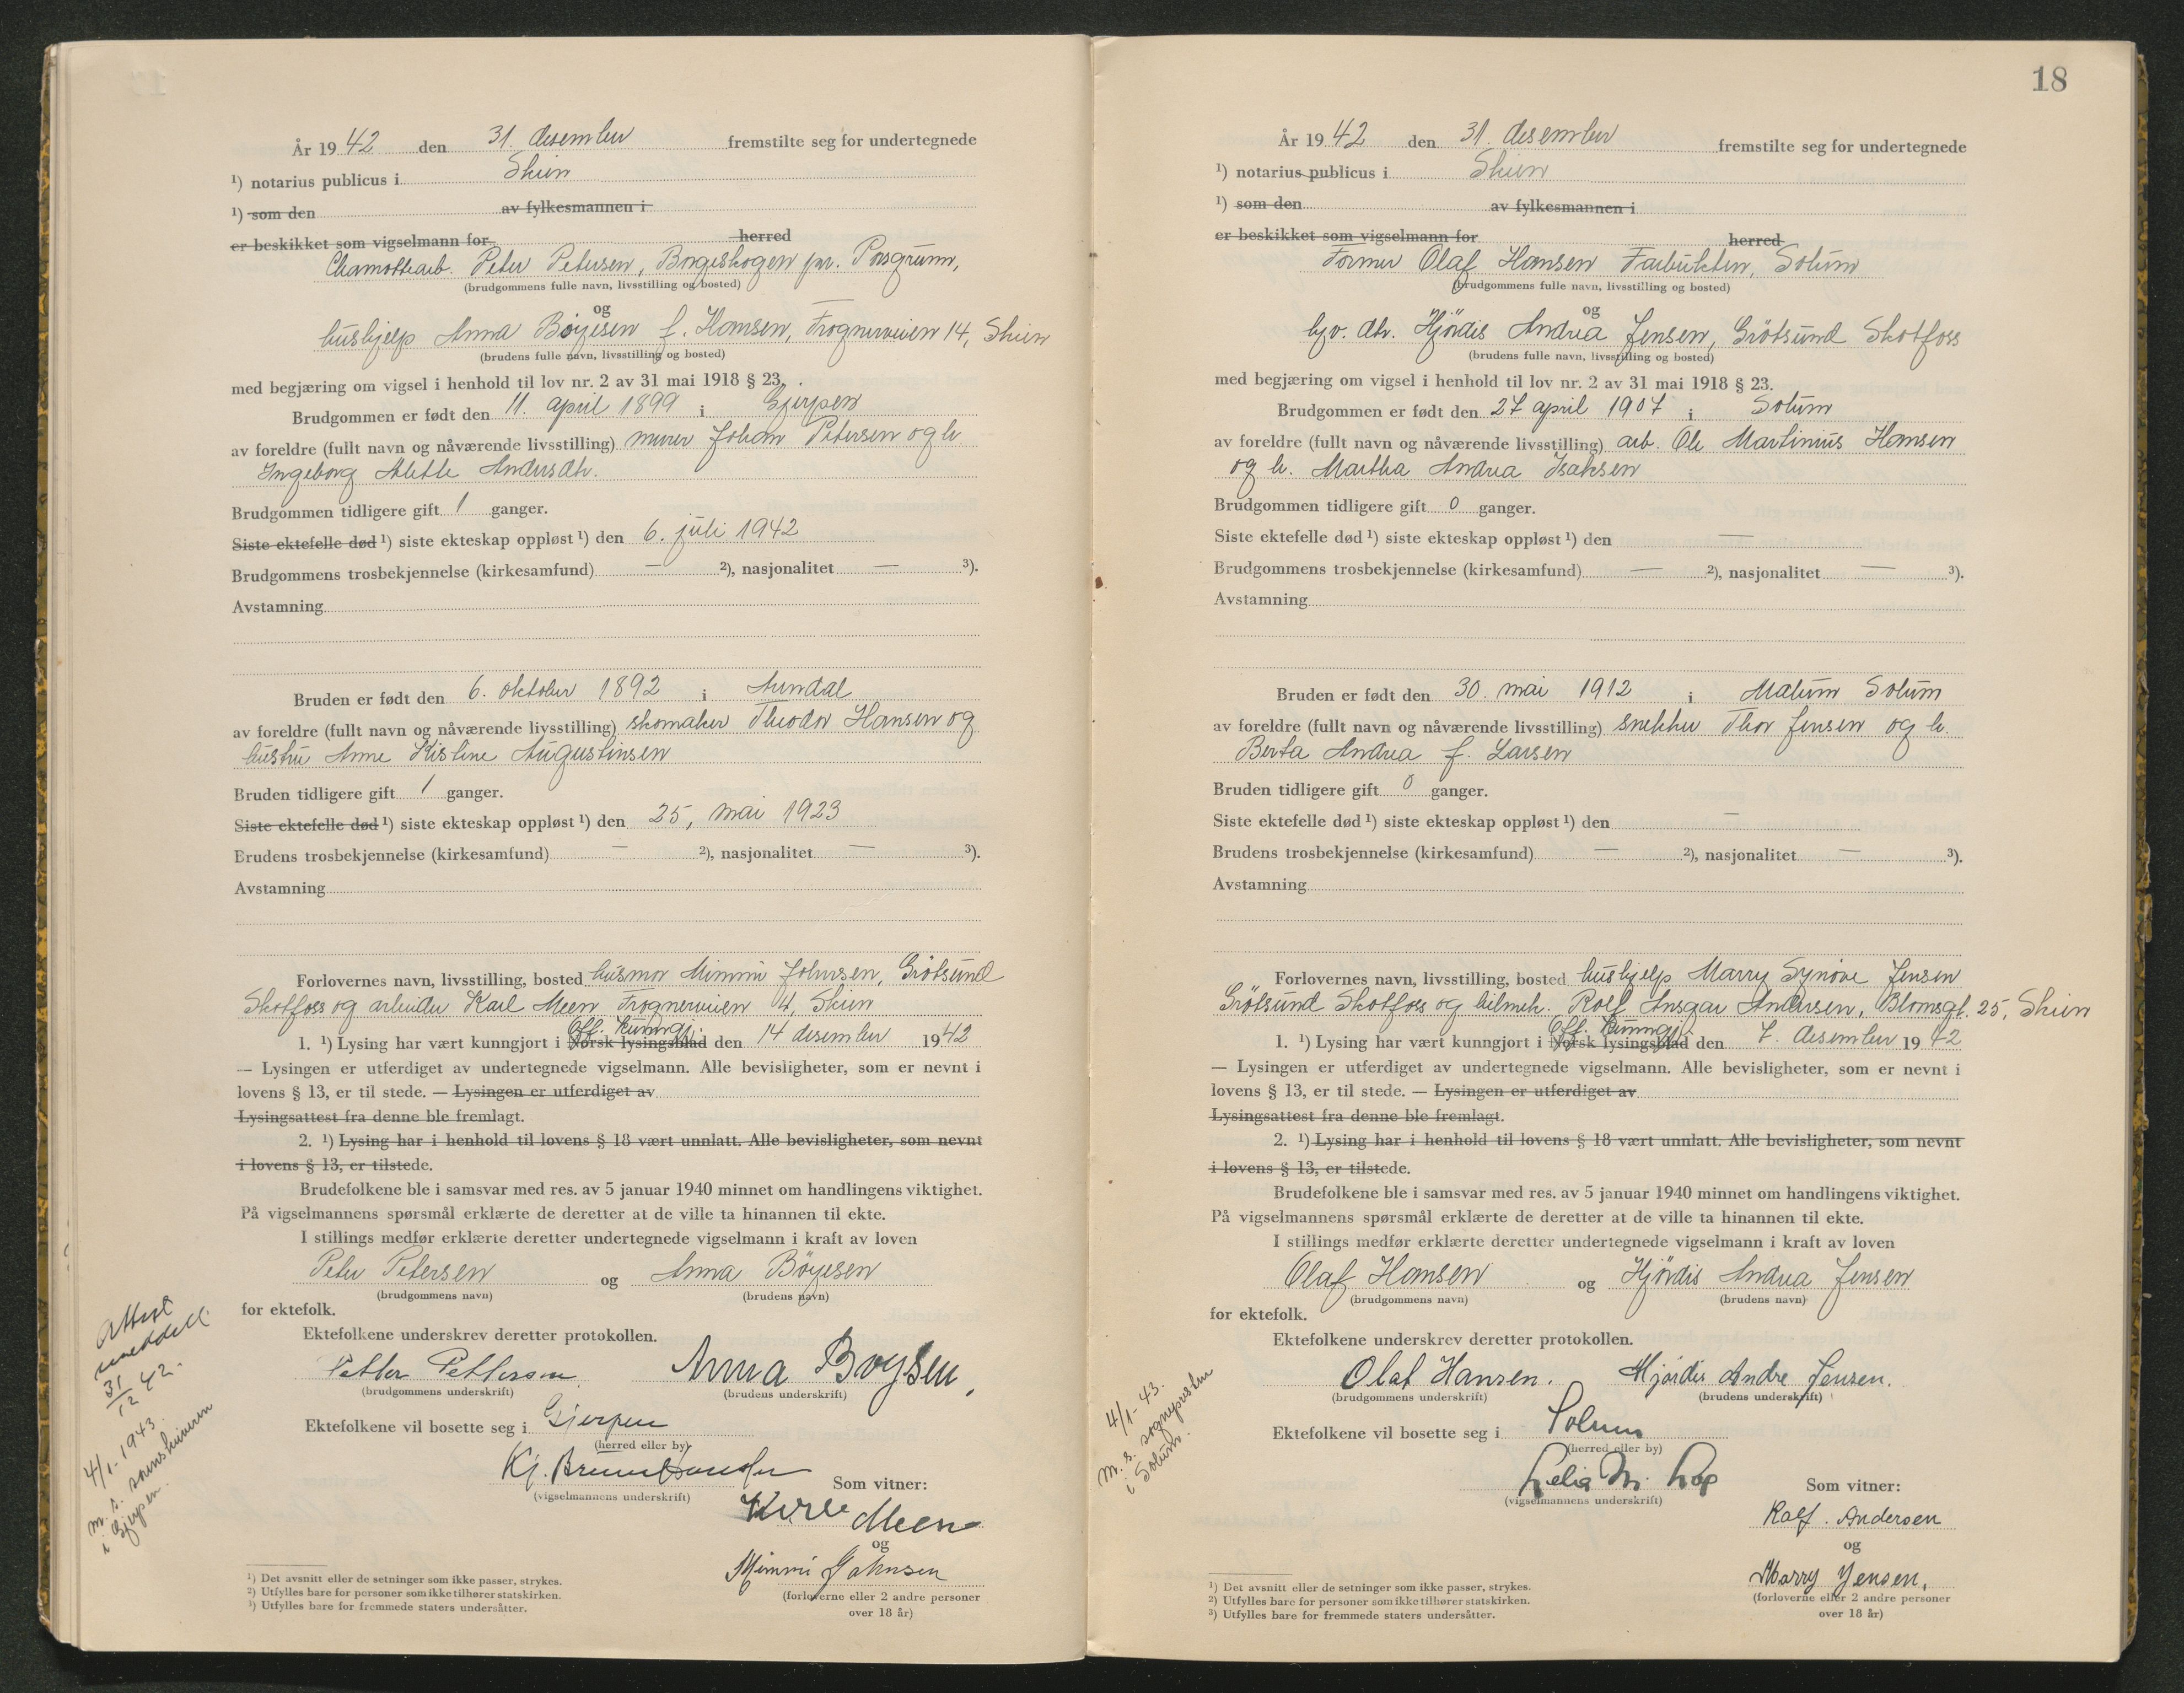 År 1942 den 31. desember fremstilte seg for undertegnede
¹) notarius publicus i Skien
¹) som den av fylkesmannen i
er beskikket som vigselmann for herred
Chamottearb. Peter Petersen, Borgeskogen pr. Porsgrunn,
(brudgommens fulle navn, livsstilling og bosted)
og
hushjelp Anna Böyesen f. Hansen, Frognerveien 14, Skien
(brudens fulle navn, livsstilling og bosted)
med begjæring om vigsel i henhold til lov nr. 2 av 31 mai 1918 § 23.
Brudgommen er født den 11. april 1899 i Gjerpen
av foreldre (fullt navn og nåværende livsstilling) murer Johan Petersen og h
Ingeborg Alette Andersdtr.
Brudgommen tidligere gift 1 ganger.
Siste ektefelle død ¹) siste ekteskap oppløst ¹) den 6. juli 1942
Brudgommens trosbekjennelse (kirkesamfund) — ²), nasjonalitet — ³).
Avstamning
Bruden er født den 6. oktober 1892 i Arendal
av foreldre (fullt navn og nåværende livsstilling) skomaker Theodor Hansen og
hustru Anne Kistine Augustinsen
Bruden tidligere gift 1 ganger.
Siste ektefelle død ¹) siste ekteskap oppløst ¹) den 25, mai 1923
Brudens trosbekjennelse (kirkesamfund) — ²), nasjonalitet — ³).
Avstamning
Forlovernes navn, livsstilling, bosted husmor Mimmi Johnsen, Grötsund
Skotfoss og arbeider Karl Meen Frognerveien 4, Skien
Off. Kunngj.
1. ¹) Lysing har vært kunngjort i Norsk lysingsblad den 14 desember 1942
— Lysingen er utferdiget av undertegnede vigselmann. Alle bevisligheter, som er nevnt i
lovens § 13, er til stede. — Lysingen er utferdiget av
Lysingsattest fra denne ble fremlagt.
2. ¹) Lysing har i henhold til lovens § 18 vært unnlatt. Alle bevisligheter, som nevnt
i lovens § 13, er tilstede.
Brudefolkene ble i samsvar med res. av 5 januar 1940 minnet om handlingens viktighet.
På vigselmannens spørsmål erklærte de deretter at de ville ta hinannen til ekte.
I stillings medfør erklærte deretter undertegnede vigselmann i kraft av loven
Peter Petersen og Anna Böyesen
(brudgommens navn) (brudens navn)
for ektefolk.
Ektefolkene underskrev deretter protokollen.
Petter Pettersen. Anna Boysen,
(brudgommens underskrift) (brudens underskrift)
Ektefolkene vil bosette seg i Gjerpen
(herred eller by)
Kj.
(vigselmannens underskrift) Som vitner:
Meen
og
Mimmi Johnsen
(forloverne eller 2 andre personer
over 18 år)
Attest
meddelt
31/12 42.
4/1-1943.
m. s.
i Gjerpen.
¹) Det avsnitt eller de setninger som ikke passer, strykes.
²) Utfylles bare for personer som ikke tilhører statskirken.
³) Utfylles bare for fremmede staters undersåtter.
18
År 1942 den 31. desember fremstilte seg for undertegnede
¹) notarius publicus i Skien
¹) som den av fylkesmannen i
er beskikket som vigselmann for herred
Former Olaf Hansen Farbukten, Solum
(brudgommens fulle navn, livsstilling og bosted)
og
hjv. dtr. Hjördis Andrea Jensen, Grötsund Skotfoss
(brudens fulle navn, livsstilling og bosted)
med begjæring om vigsel i henhold til lov nr. 2 av 31 mai 1918 § 23.
Brudgommen er født den 27 april 1907 i Solum
av foreldre (fullt navn og nåværende livsstilling) arb. Ole Martinius Hansen
og h. Martha Andrea Isaksen
Brudgommen tidligere gift 0 ganger.
Siste ektefelle død ¹) siste ekteskap oppløst ¹) den —
Brudgommens trosbekjennelse (kirkesamfund) — ²), nasjonalitet — ³).
Avstamning
Bruden er født den 30. mai 1912 i Melum Solum
av foreldre (fullt navn og nåværende livsstilling) snekker Thor Jensen og h.
Berta Andrea f. Larsen
Bruden tidligere gift 0 ganger.
Siste ektefelle død ¹) siste ekteskap oppløst ¹) den —
Brudens trosbekjennelse (kirkesamfund) — ²), nasjonalitet — ³).
Avstamning
Forlovernes navn, livsstilling, bosted hushjelp Marry Synöve Jensen
Grötsund Skotfoss og bilmek. Rolf Ansgar Andersen, Blomsgt. 25, Skien
Off. Kunngj.
1. ¹) Lysing har vært kunngjort i Norsk lysingsblad den 7. desember 1942
— Lysingen er utferdiget av undertegnede vigselmann. Alle bevisligheter, som er nevnt i
lovens § 13, er til stede. — Lysingen er utferdiget av
Lysingsattest fra denne ble fremlagt.
2. ¹) Lysing har i henhold til lovens § 18 vært unnlatt. Alle bevisligheter, som nevnt
i lovens § 13, er tilstede.
Brudefolkene ble i samsvar med res. av 5 januar 1940 minnet om handlingens viktighet.
På vigselmannens spørsmål erklærte de deretter at de ville ta hinannen til ekte.
I stillings medfør erklærte deretter undertegnede vigselmann i kraft av loven
Olaf Hansen og Hjördis Andrea Jensen
(brudgommens navn) (brudens navn)
for ektefolk.
Ektefolkene underskrev deretter protokollen.
Olaf Hansen. Hjördis Andre Jensen.
(brudgommens underskrift) (brudens underskrift)
Ektefolkene vil bosette seg i Solum
(herred eller by)
Lelia M.
(vigselmannens underskrift) Som vitner:
Rolf. Andersen
og
Marry Jensen,
(forloverne eller 2 andre personer
over 18 år)
4/1-43.
m. s. sognepresten
i Solum.
¹) Det avsnitt eller de setninger som ikke passer, strykes.
²) Utfylles bare for personer som ikke tilhører statskirken.
³) Utfylles bare for fremmede staters undersåtter.